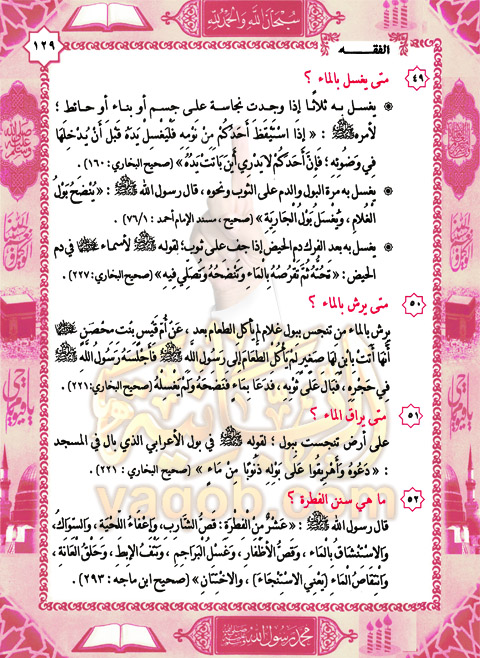 سُبْحَانَ اللَّهِ وَالْحَمْدُ لِلَّهِ
الفقـــه
١٢٩
٤٩ متى يغسل بالماء ؟
يغسل به ثلاثًا إذا وجدت نجاسة على جسم أو بناء أو حائط ؛
لأمره ﷺ : « إِذَا اسْتَيْقَظَ أَحَدُكُمْ مِنْ نَوْمِهِ فَلْيَغْسِل يَدَهُ قَبْلَ أَنْ يُدْخلَهَا
فِي وَضُوئِهِ ؛ فَإِنَّ أَحَدَكُمْ لاَ يَدْرِي أَيْنَ بَاتَتْ يَدُهُ » (صحيح البخاري : ١٦٠) .
يغسل به مرة البول والدم على الثوب ونحوه ، قال رسول الله ﷺ : « يُنْضَحُ بَوْلُ
الْغُلاَمِ ، وَيُغْسَلُ بَوْلُ الْجَارِيَةِ » (صحيح ، مسند الإمام أحمد : ٧٦/١) .
يغسل به بعد الفرك دم الحيض إذا جف على ثوب ؛ لقوله ﷺ لأسماء في دم
الحيض : « تَحُتُّهُ ثُمَّ تَقْرُصُهُ بِالْمَاءِ وَتَنْضَحُهُ وَتُصَلِّي فِيهِ » (صحيح البخاري: ٢٢٧) .
٥٠ متى يرش بالماء ؟
يرش بالماء من تنجس ببول غلام لم يأكل الطعام بعد ، عَنْ أُمِّ قَيْسٍ بِنْتِ مِحْصَنٍ
أَنَّهَا أَتَتْ بِابْنٍ لَهَا صَغِيرٍ لَمْ يَأْكُلِ الطَّعَامَ إِلَى رَسُولِ اللَّهِ ﷺ فَأَجْلَسَهُ رَسُولُ اللَّهِ ﷺ
فِي حَجْرِهِ، فَبَالَ عَلَى ثَوْبِهِ ، فَدَعَا بِمَاءٍ فَنَضَحَهُ وَلَمْ يَغْسِلْهُ (صحيح البخاري: ٢٢١).
٥١ متى يراق الماء ؟
على أرض تنجست ببول ؛ لقوله ﷺ في بول الأعرابي الذي بال في المسجد
: « دَعُوهُ وَأَهْرِيقُوا عَلَى بَوْلِهِ ذَنُوبًا مِنْ مَاءٍ » (صحيح البخاري : ٢٢١) .
٥٢ ما هي سنن الفطرة ؟
قال رسول الله ﷺ : « عَشْرٌ مِنْ الْفِطْرَةِ : قَصُّ الشَّارِبِ، وَإِعْفَاءُ اللِّحْيَةِ ، وَالسِّوَاكُ ،
وَالاِسْتِنْشَاقُ بِالْمَاءِ ، وَقَصُّ الأَظْفَارِ ، وَغَسْلُ الْبَرَاجِمِ ، وَنَتْفُ الإِبِطِ ، وَحَلْقُ الْعَانَةِ ،
وَانْتِقَاصُ الْمَاءِ (يَعْنِي الاِسْتِنْجَاءَ) ، وَالاخْتِتَانِ » (صحيح ابن ماجه : ٢٩٣) .
yaqob.com
محمد رسول الله ﷺ